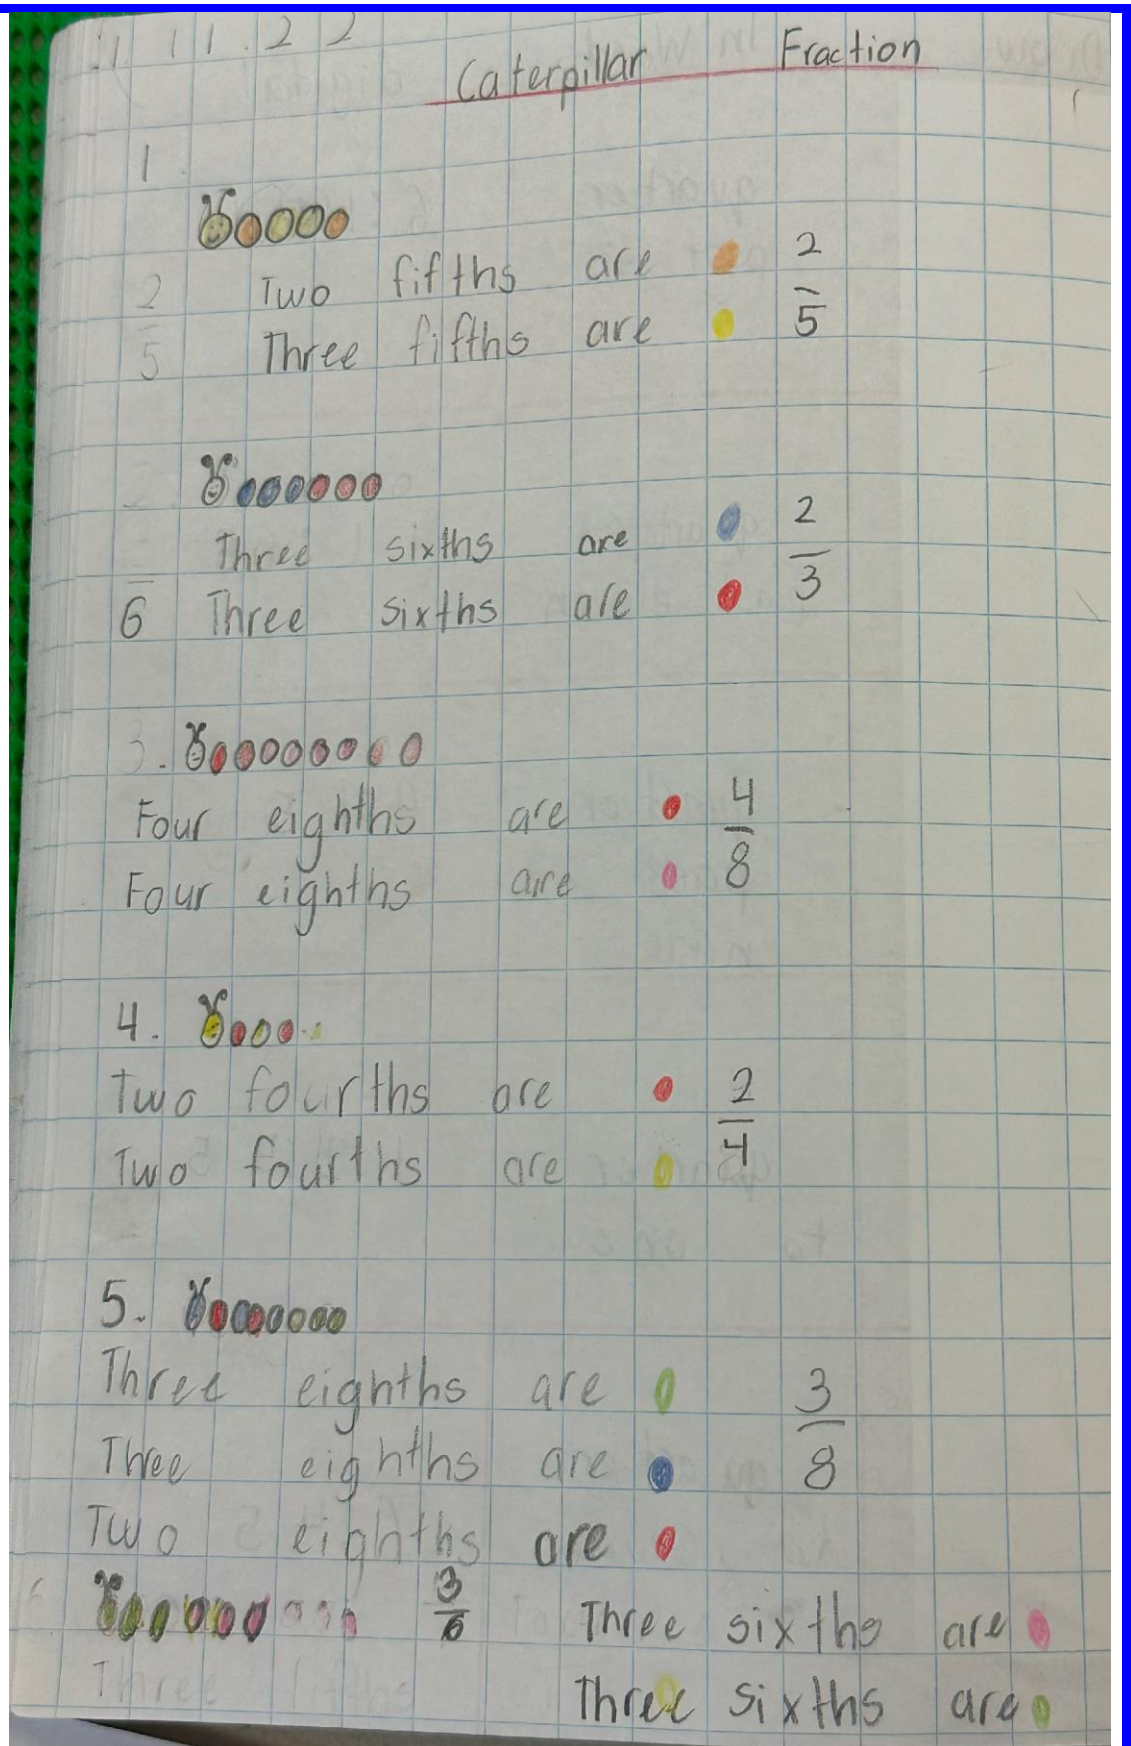 11.11.22
Caterpillar Fraction
1
2/5 Two fifths are 2/5
Three fifths are
Three sixths are 2/3
6 Three sixths are
3.
Four eighths are 4/8
Four eighths are
4.
Two fourths are 2/4
Two fourths are
5.
Three eighths are 3/8
Three eighths are
Two eighths are
3/6 Three sixths are
Three Three sixths are